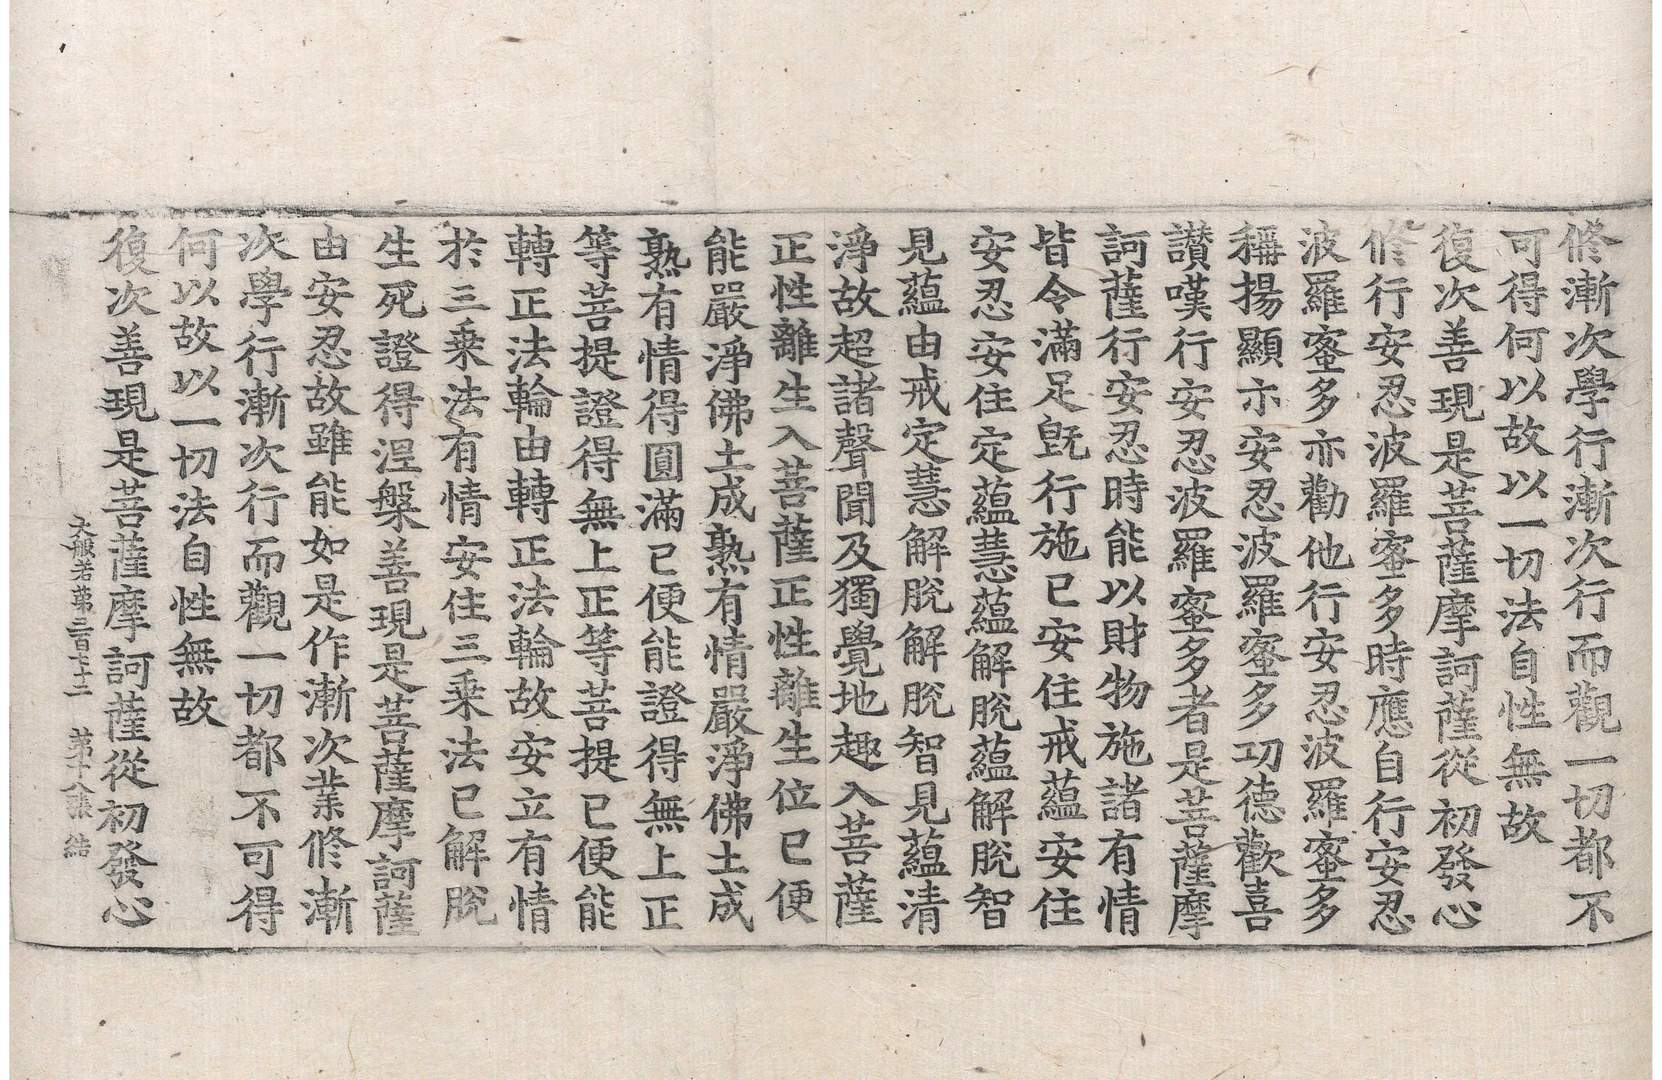 修漸次學行漸次行而觀一切都不
可得何以故以一切法自性無故
復次善現是菩薩摩訶薩從初發心
修行安忍波羅蜜多時應自行安忍
波羅蜜多亦勸他行安忍波羅蜜多
稱揚顯示安忍波羅蜜多功德歡喜
讃嘆行安忍波羅蜜多者是菩薩摩
訶薩行安忍時能以財物施諸有情
皆令滿足旣行施已安住戒蘊安住
安忍安住定蘊慧蘊解脫蘊解脫智
見蘊由戒定慧解脫解脫智見蘊清
淨故超諸聲聞及獨覺地趣入菩薩
正性離生入菩薩正性離生位已便
能嚴淨佛土成熟有情嚴淨佛土成
熟有情得圓滿已便能證得無上正
等菩提證得無上正等菩提已便能
轉正法輪由轉正法輪故安立有情
於三乗法有情安住三乗法已解脫
生死證得涅槃善現是菩薩摩訶薩
由安忍故雖能如是作漸次業修漸
次學行漸次行而觀一切都不可得
何以故以一切法自性無故
復次善現是菩薩摩訶薩從初發心
大般若第三百七十二 第十八張 結